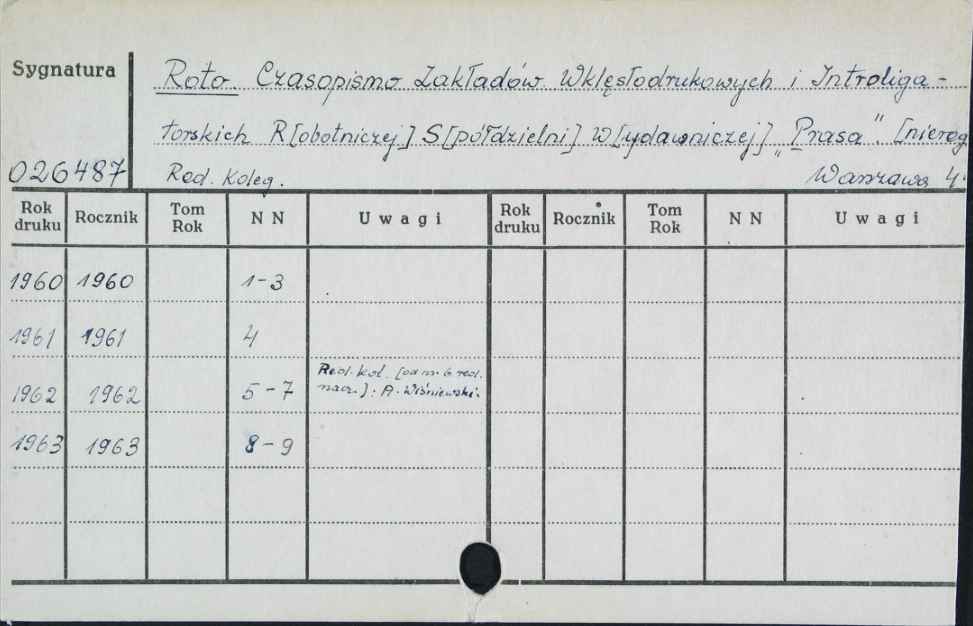 Sygnatura
Roto. Czasopismo Zakładów Wklęsłodrukowych i Introliga-
torskich R[obotniczej] S[półdzielni] W[ydawniczej] „Prasa". [niereg
026487 Red. Koleg. Warszawa 4°
Rok druku Rocznik Tom Rok NN Uwagi Rok druku Rocznik Tom Rok NN Uwagi
1960 1960 1-3
1961 1961 4
1962 1962 5-7 Red. kol. [od nr 6 red.
nacz.]: A. Wiśniewski.
1963 1963 8-9